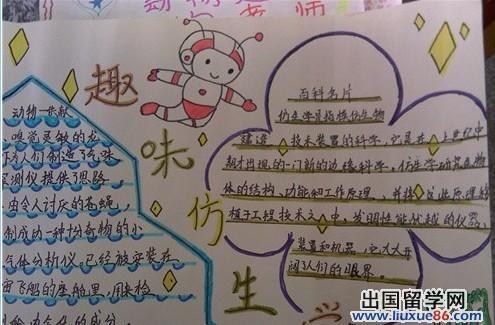 趣
味
仿
生
动物一贡献
嗅觉灵敏的龙
吓人们制造了气味
探测仪提供了思路
由令人讨厌的苍蝇,
制成功一种十分奇特的小
气体分析仪。已经被安装在
宙飞船的座舱里,用来检
舱内气体的成分。
百科名片
仿生学是指模仿生物
建造技术装置的科学,它是在上世纪中
期才出现的一门新的边缘科学,仿生学研究生物
体的结构、功能和工作原理,并将这些原理移
植于工程技术之中,发明性能优越的仪器、
装置和机器,它大大开
阔了人们的眼界。
出国留学网
www.liuxue86.com